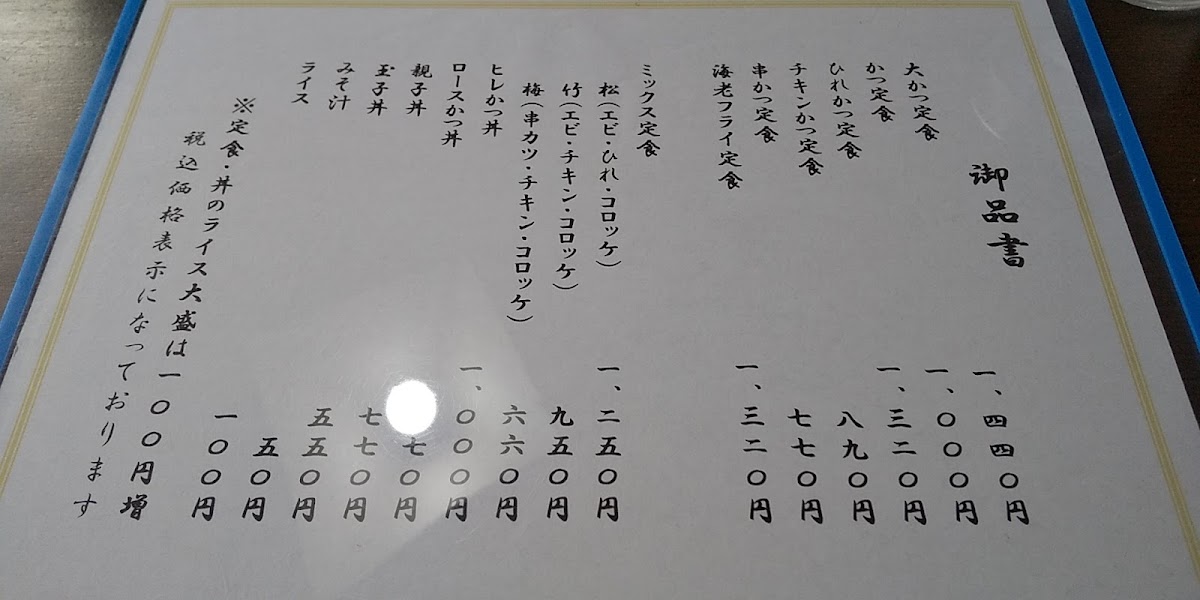 御品書
大かつ定食 一、四四〇円
かつ定食 一、〇〇〇円
ひれかつ定食 一、三二〇円
チキンかつ定食 八九〇円
串かつ定食 七七〇円
海老フライ定食 一、三二〇円
ミックス定食
松(エビ・ひれ・コロッケ) 一、二五〇円
竹(エビ・チキン・コロッケ) 九五〇円
梅(串カツ・チキン・コロッケ) 六六〇円
ヒレかつ丼 一、〇〇〇円
ロースかつ丼
親子丼 七七〇円
玉子丼 五五〇円
みそ汁 五〇円
ライス 一〇〇円
※定食・丼のライス大盛は一〇〇円増
税込価格表示になっております